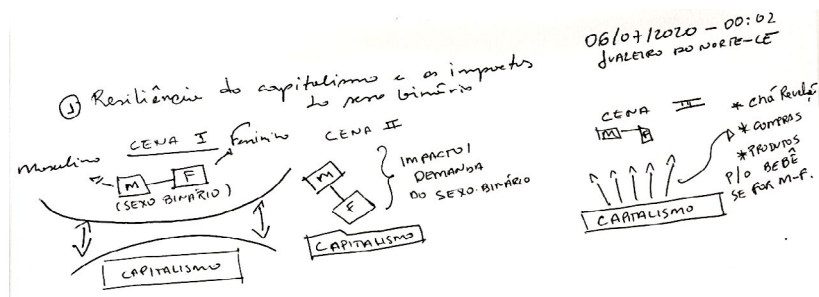 06/07/2020 - 00:02
JUAZEIRO DO NORTE-CE
① Resiliência do capitalismo e os impactos
do sexo binário
CENA I
Masculino
Feminino
M
F
(SEXO BINÁRIO)
CAPITALISMO
CENA II
M
F
IMPACTO/
DEMANDA
DO SEXO-BINÁRIO
CAPITALISMO
CENA III
M
* Chá Revelação
* COMPRAS
* PRODUTOS
P/O BEBÊ
SE FOR M-F.
CAPITALISMO